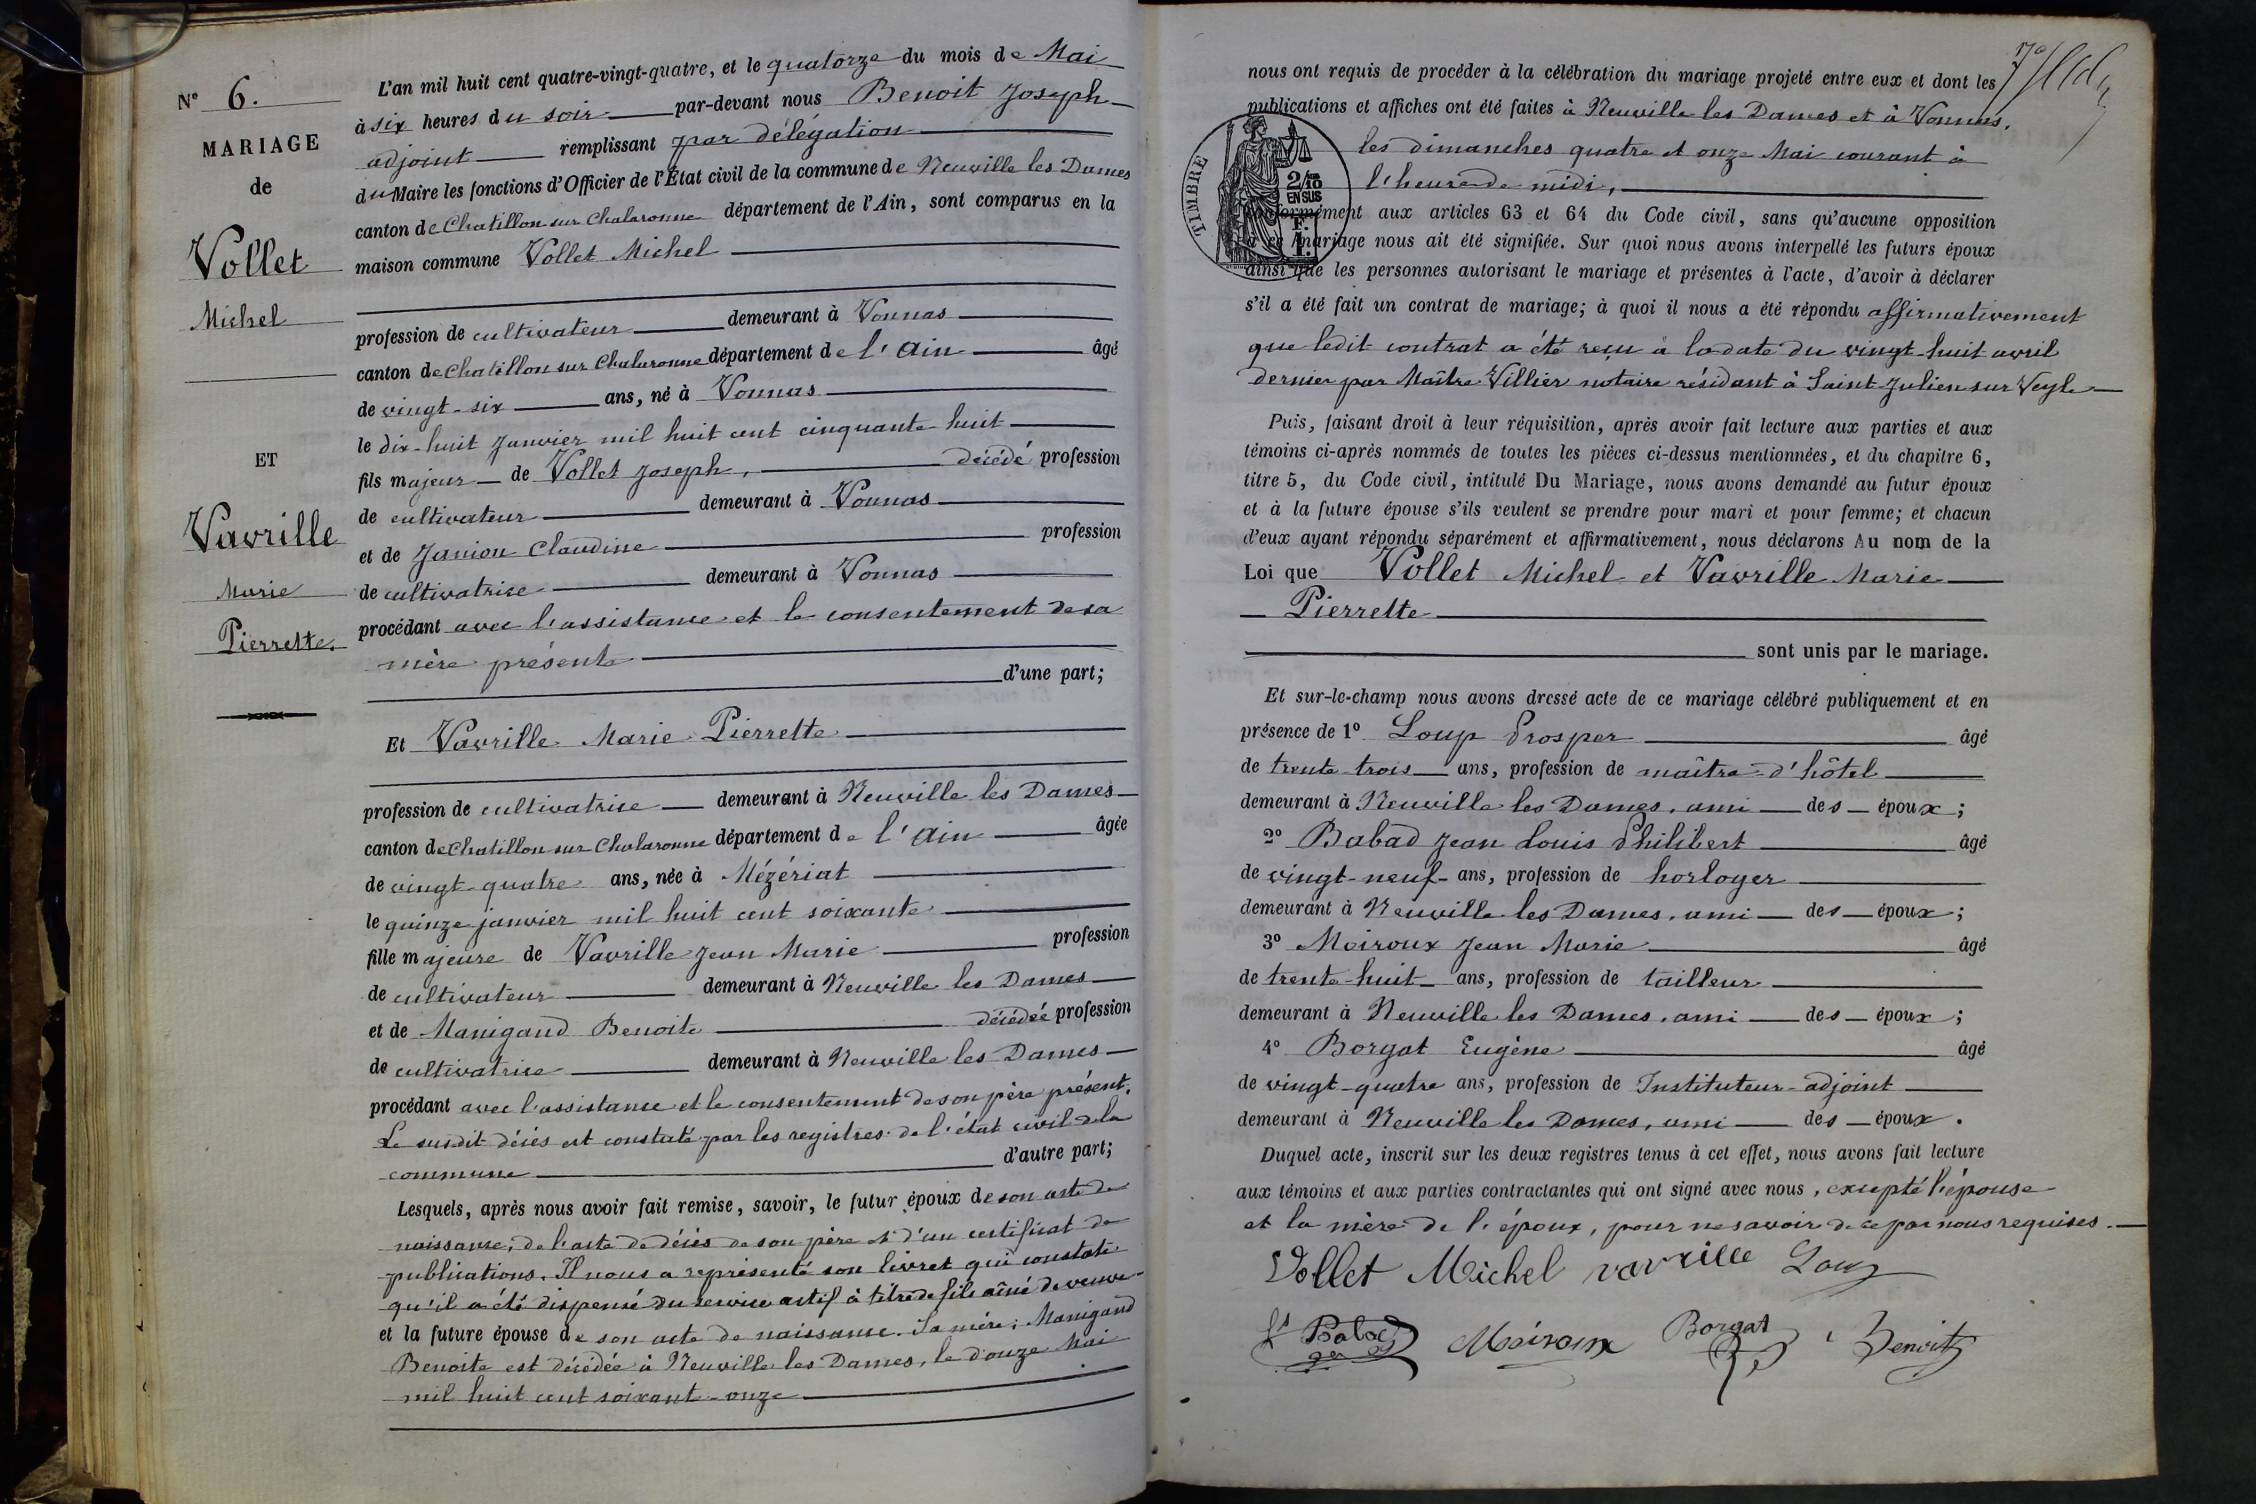 N° 6.
MARIAGE
de
Vollet
Michel
ET
Vavrille
Marie
Pierrette.
L'an mil huit cent quatre-vingt-quatre, et le quatorze du mois de Mai
à six heures du soir par-devant nous Benoit Joseph
adjoint remplissant par délégation
du Maire les fonctions d'Officier de l'État civil de la commune de Neuville les Dames
canton de Chatillon sur Chalaronne département de l'Ain, sont comparus en la
maison commune Vollet Michel
profession de cultivateur demeurant à Vonnas
canton de Chatillon sur Chalaronne département de l'Ain âgé
de vingt-six ans, né à Vonnas
le dix-huit Janvier mil huit cent cinquante huit
fils majeur de Vollet Joseph, décédé profession
de cultivateur demeurant à Vonnas
et de Janion Claudine profession
de cultivatrice demeurant à Vonnas
procédant avec l'assistance et le consentement de sa
mère présente
d'une part;
Et Vavrille Marie Pierrette
profession de cultivatrice demeurant à Neuville les Dames
canton de Chatillon sur Chalaronne département de l'Ain âgée
de vingt-quatre ans, née à Mézériat
le quinze janvier mil huit cent soixante
fille majeure de Vavrille Jean Marie profession
de cultivateur demeurant à Neuville les Dames
et de Manigand Benoite décédée profession
de cultivatrice demeurant à Neuville les Dames
procédant avec l'assistance et le consentement de son père présent.
Le susdit décès est constaté par les registres de l'état civil de la
commune d'autre part;
Lesquels, après nous avoir fait remise, savoir, le futur époux de son acte de
naissance, de l'acte de décès de son père et d'un certificat de
publications. Il nous a représenté son livret qui constate
qu'il a été dispensé du service actif à titre de fils aîné de veuve
et la future épouse de son acte de naissance. Sa mère, Manigand
Benoite est décédée à Neuville les Dames, le douze Mai
mil huit cent soixante-onze
nous ont requis de procéder à la célébration du mariage projeté entre eux et dont les
publications et affiches ont été faites à Neuville les Dames et à Vonnas,
les dimanches quatre et onze Mai courant à
l'heure de midi,
TIMBRE
2/10
EN SUS
F.
1.
conformément aux articles 63 et 64 du Code civil, sans qu'aucune opposition
à ce mariage nous ait été signifiée. Sur quoi nous avons interpellé les futurs époux
ainsi que les personnes autorisant le mariage et présentes à l'acte, d'avoir à déclarer
s'il a été fait un contrat de mariage; à quoi il nous a été répondu affirmativement
que ledit contrat a été reçu à la date du vingt-huit avril
dernier par Maître Villier notaire résidant à Saint Julien sur Veyle
Puis, faisant droit à leur réquisition, après avoir fait lecture aux parties et aux
témoins ci-après nommés de toutes les pièces ci-dessus mentionnées, et du chapitre 6,
titre 5, du Code civil, intitulé Du Mariage, nous avons demandé au futur époux
et à la future épouse s'ils veulent se prendre pour mari et pour femme; et chacun
d'eux ayant répondu séparément et affirmativement, nous déclarons Au nom de la
Loi que Vollet Michel et Vavrille Marie
Pierrette
sont unis par le mariage.
Et sur-le-champ nous avons dressé acte de ce mariage célébré publiquement et en
présence de 1° Loup Prosper âgé
de trente-trois ans, profession de maître d'hôtel
demeurant à Neuville les Dames, ami des époux;
2° Babad Jean Louis Philibert âgé
de vingt-neuf ans, profession de horloger
demeurant à Neuville les Dames, ami des époux;
3° Moiroux Jean Marie âgé
de trente-huit ans, profession de tailleur
demeurant à Neuville les Dames, ami des époux;
4° Borgat Eugène âgé
de vingt-quatre ans, profession de Instituteur-adjoint
demeurant à Neuville les Dames, ami des époux.
Duquel acte, inscrit sur les deux registres tenus à cet effet, nous avons fait lecture
aux témoins et aux parties contractantes qui ont signé avec nous, excepté l'épouse
et la mère de l'époux, pour ne savoir de ce par nous requises.
Vollet Michel vavrille Loup
Babad Moiroux Borgat Benoit